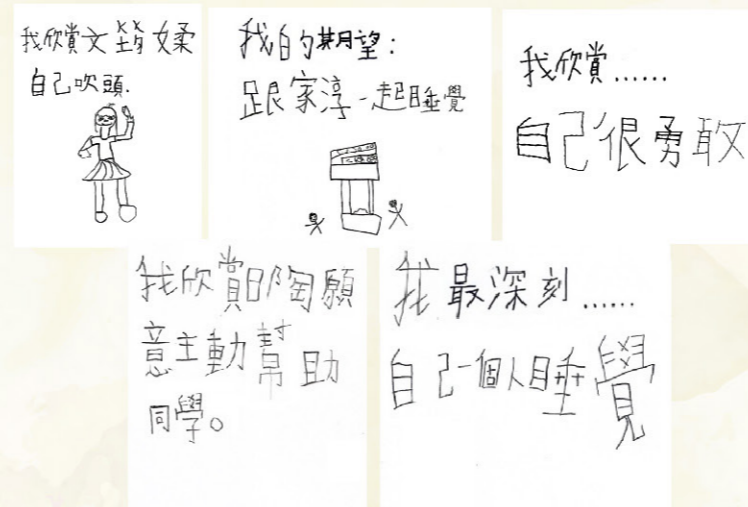 我欣賞文瑩媃
自己吹頭.
我的期望:
跟家淳一起睡覺
我欣賞......
自己很勇敢
我欣賞昍陶願
意主動幫助
同學。
我最深刻......
自己一個人睡覺